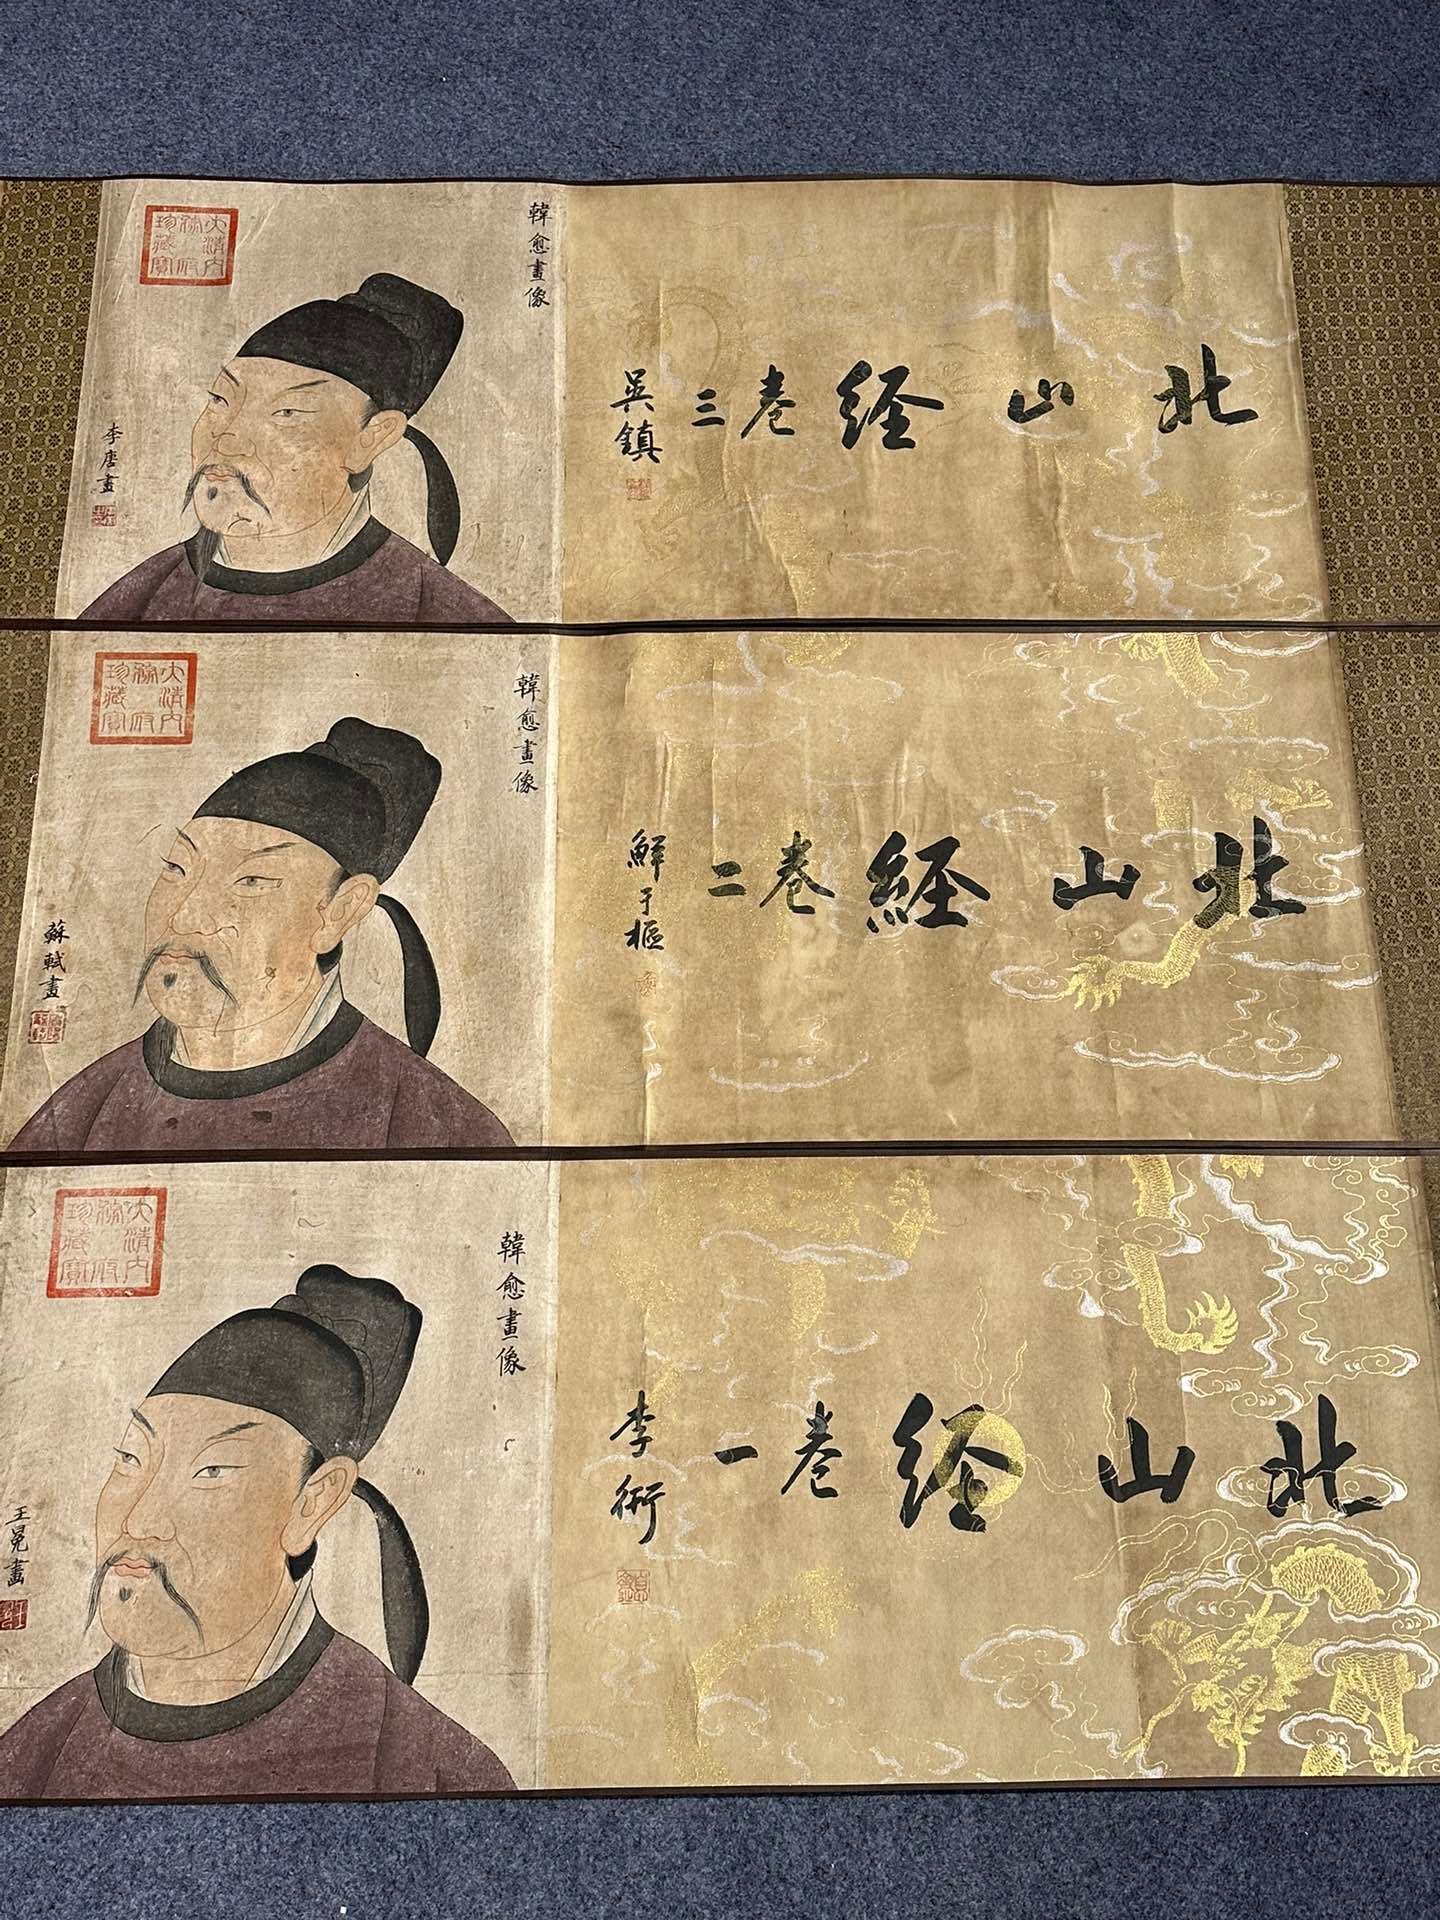 北山经卷三
吳鎮
韓愈畫像
大清內府珍藏寶
李唐畫
北山經卷二
鮮于樞
韓愈畫像
大清內府珍藏寶
蘇軾畫
北山经卷一
李衎
韓愈畫像
大清內府珍藏寶
王冕畫